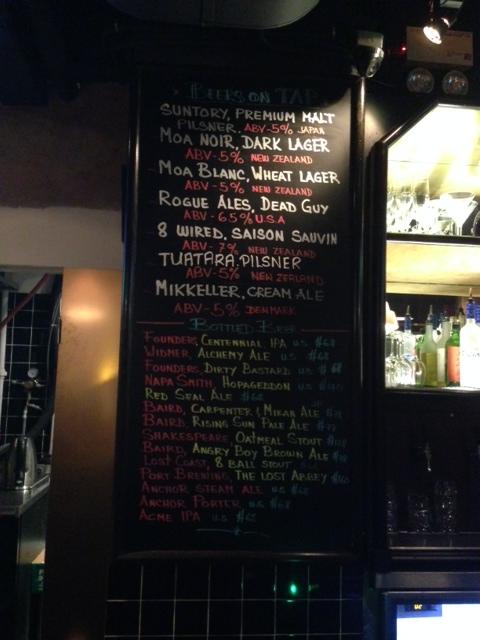 BEERS ON TAP
SUNTORY, PREMIUM MALT
PILSNER, ABV-5% JAPAN
MOA NOIR, DARK LAGER
ABV-5% NEW ZEALAND
MOA BLANC, WHEAT LAGER
ABV-5% NEW ZEALAND
ROGUE ALES, DEAD GUY
ABV-6.5% U.S.A
8 WIRED, SAISON SAUVIN
ABV-7% NEW ZEALAND
TUATARA, PILSNER
ABV-5% NEW ZEALAND
MIKKELLER, CREAM ALE
ABV-5% DENMARK
BOTTLED BEER
FOUNDERS, CENTENNIAL IPA U.S $68
WIDMER, ALCHEMY ALE U.S $68
FOUNDERS, DIRTY BASTARD U.S
NAPA SMITH, HOPAGEDDON U.S
RED SEAL ALE $62
BAIRD, CARPENTER & MIKAN ALE
BAIRD, RISING SUN PALE ALE
SHAKESPEARE, OATMEAL STOUT
BAIRD, ANGRY BOY BROWN ALE
LOST COAST, 8 BALL STOUT
PORT BREWING, THE LOST ABBEY
ANCHOR, STEAM ALE U.S $68
ANCHOR PORTER U.S $68
ACME IPA U.S $62